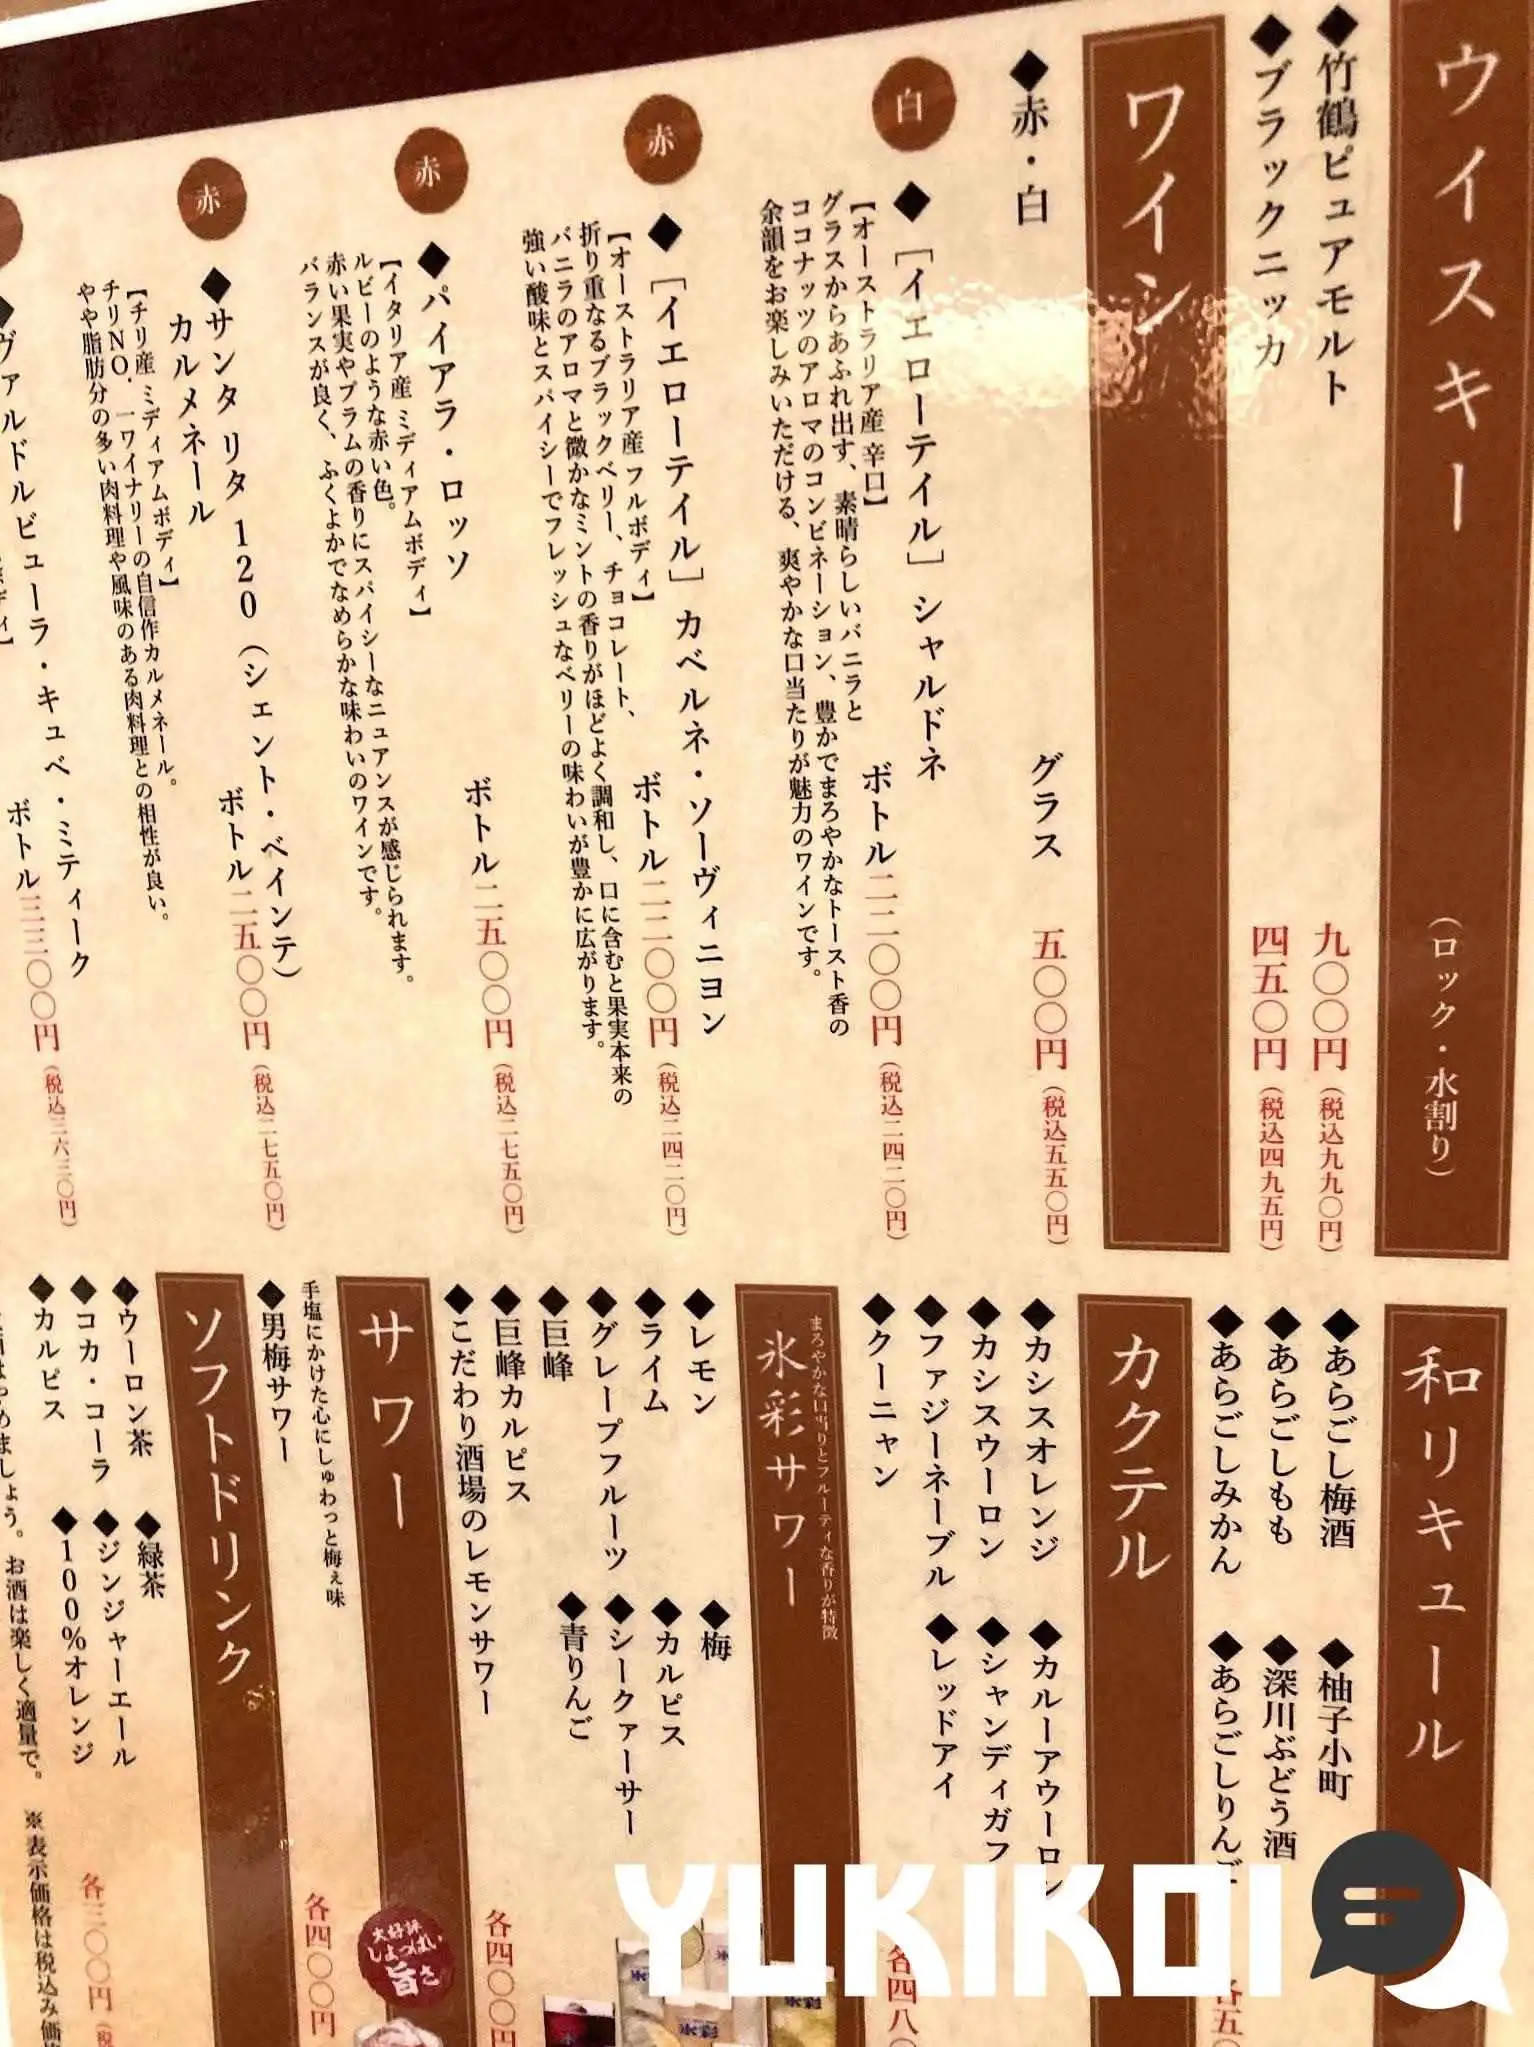 ウイスキー
（ロック・水割り）
◆竹鶴ピュアモルト
九〇〇円（税込九九〇円）
◆ブラックニッカ
四五〇円（税込四九五円）
ワイン
◆赤・白
グラス
五〇〇円（税込五五〇円）
白
◆［イエローテイル］シャルドネ
ボトル二二〇〇円（税込二四二〇円）
【オーストラリア産 辛口】
グラスからあふれ出す、素晴らしいバニラと
ココナッツのアロマのコンビネーション、豊かでまろやかなトースト香の
余韻をお楽しみいただける、爽やかな口当たりが魅力のワインです。
赤
◆［イエローテイル］カベルネ・ソーヴィニヨン
ボトル二二〇〇円（税込二四二〇円）
【オーストラリア産 フルボディ】
折り重なるブラックベリー、チョコレート、
バニラのアロマと微かなミントの香りがほどよく調和し、口に含むと果実本来の
強い酸味とスパイシーでフレッシュなベリーの味わいが豊かに広がります。
赤
◆パイアラ・ロッソ
ボトル二五〇〇円（税込二七五〇円）
【イタリア産 ミディアムボディ】
ルビーのような赤い色。
赤い果実やプラムの香りにスパイシーなニュアンスが感じられます。
バランスが良く、ふくよかでなめらかな味わいのワインです。
赤
◆サンタ リタ 120（シェント・ベインテ）
カルメネール
ボトル二五〇〇円（税込二七五〇円）
【チリ産 ミディアムボディ】
チリNO.一ワイナリーの自信作カルメネール。
やや脂肪分の多い肉料理や風味のある肉料理との相性が良い。
◆ヴァルドルビューラ・キュベ・ミティーク
ボトル三三〇〇円（税込三六三〇円）
和リキュール
◆あらごし梅酒
◆柚子小町
◆あらごしもも
◆深川ぶどう酒
◆あらごしみかん
◆あらごしりんご
各五
カクテル
◆カシスオレンジ
◆カルーアウーロン
◆カシスウーロン
◆シャンディガフ
◆ファジーネーブル
◆レッドアイ
◆クーニャン
各四八〇
まろやかな口当りとフルーティな香りが特徴
氷彩サワー
◆レモン
◆梅
◆ライム
◆カルピス
◆グレープフルーツ
◆シークァーサー
◆巨峰
◆青りんご
◆巨峰カルピス
◆こだわり酒場のレモンサワー
各四〇〇円
サワー
手塩にかけた心にしゅわっと梅ぇ味
◆男梅サワー
各四〇〇円
大好評
しょっぱい
旨さ
氷彩
ソフトドリンク
◆ウーロン茶
◆緑茶
◆コカ・コーラ
◆ジンジャーエール
◆カルピス
◆100％オレンジ
各三〇〇円（税
はやめましょう。お酒は楽しく適量で。 ※表示価格は税込み価
YUKIKOI